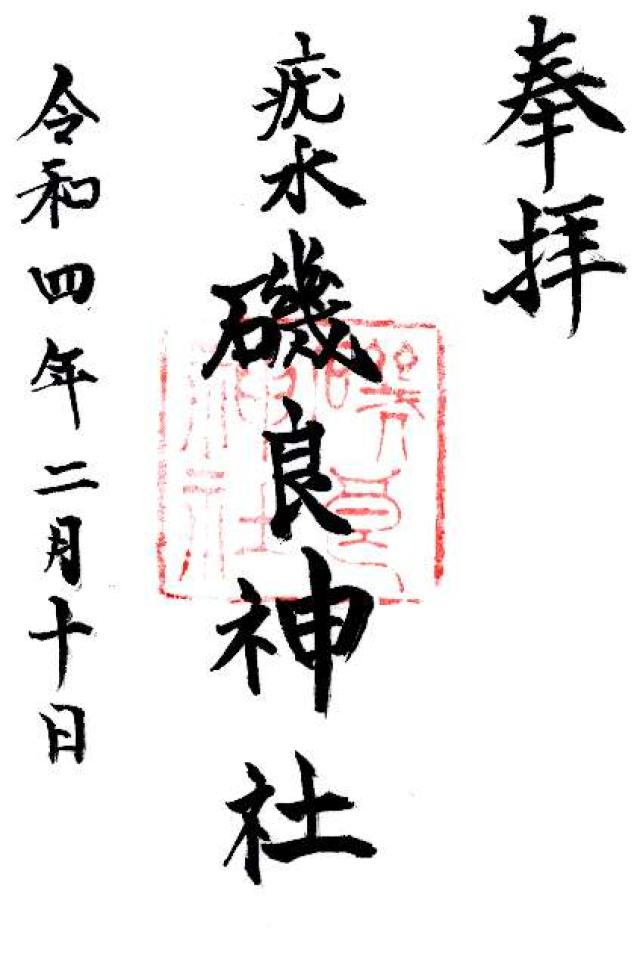 奉拝
疣水磯良神社
令和四年二月十日
磯良神社